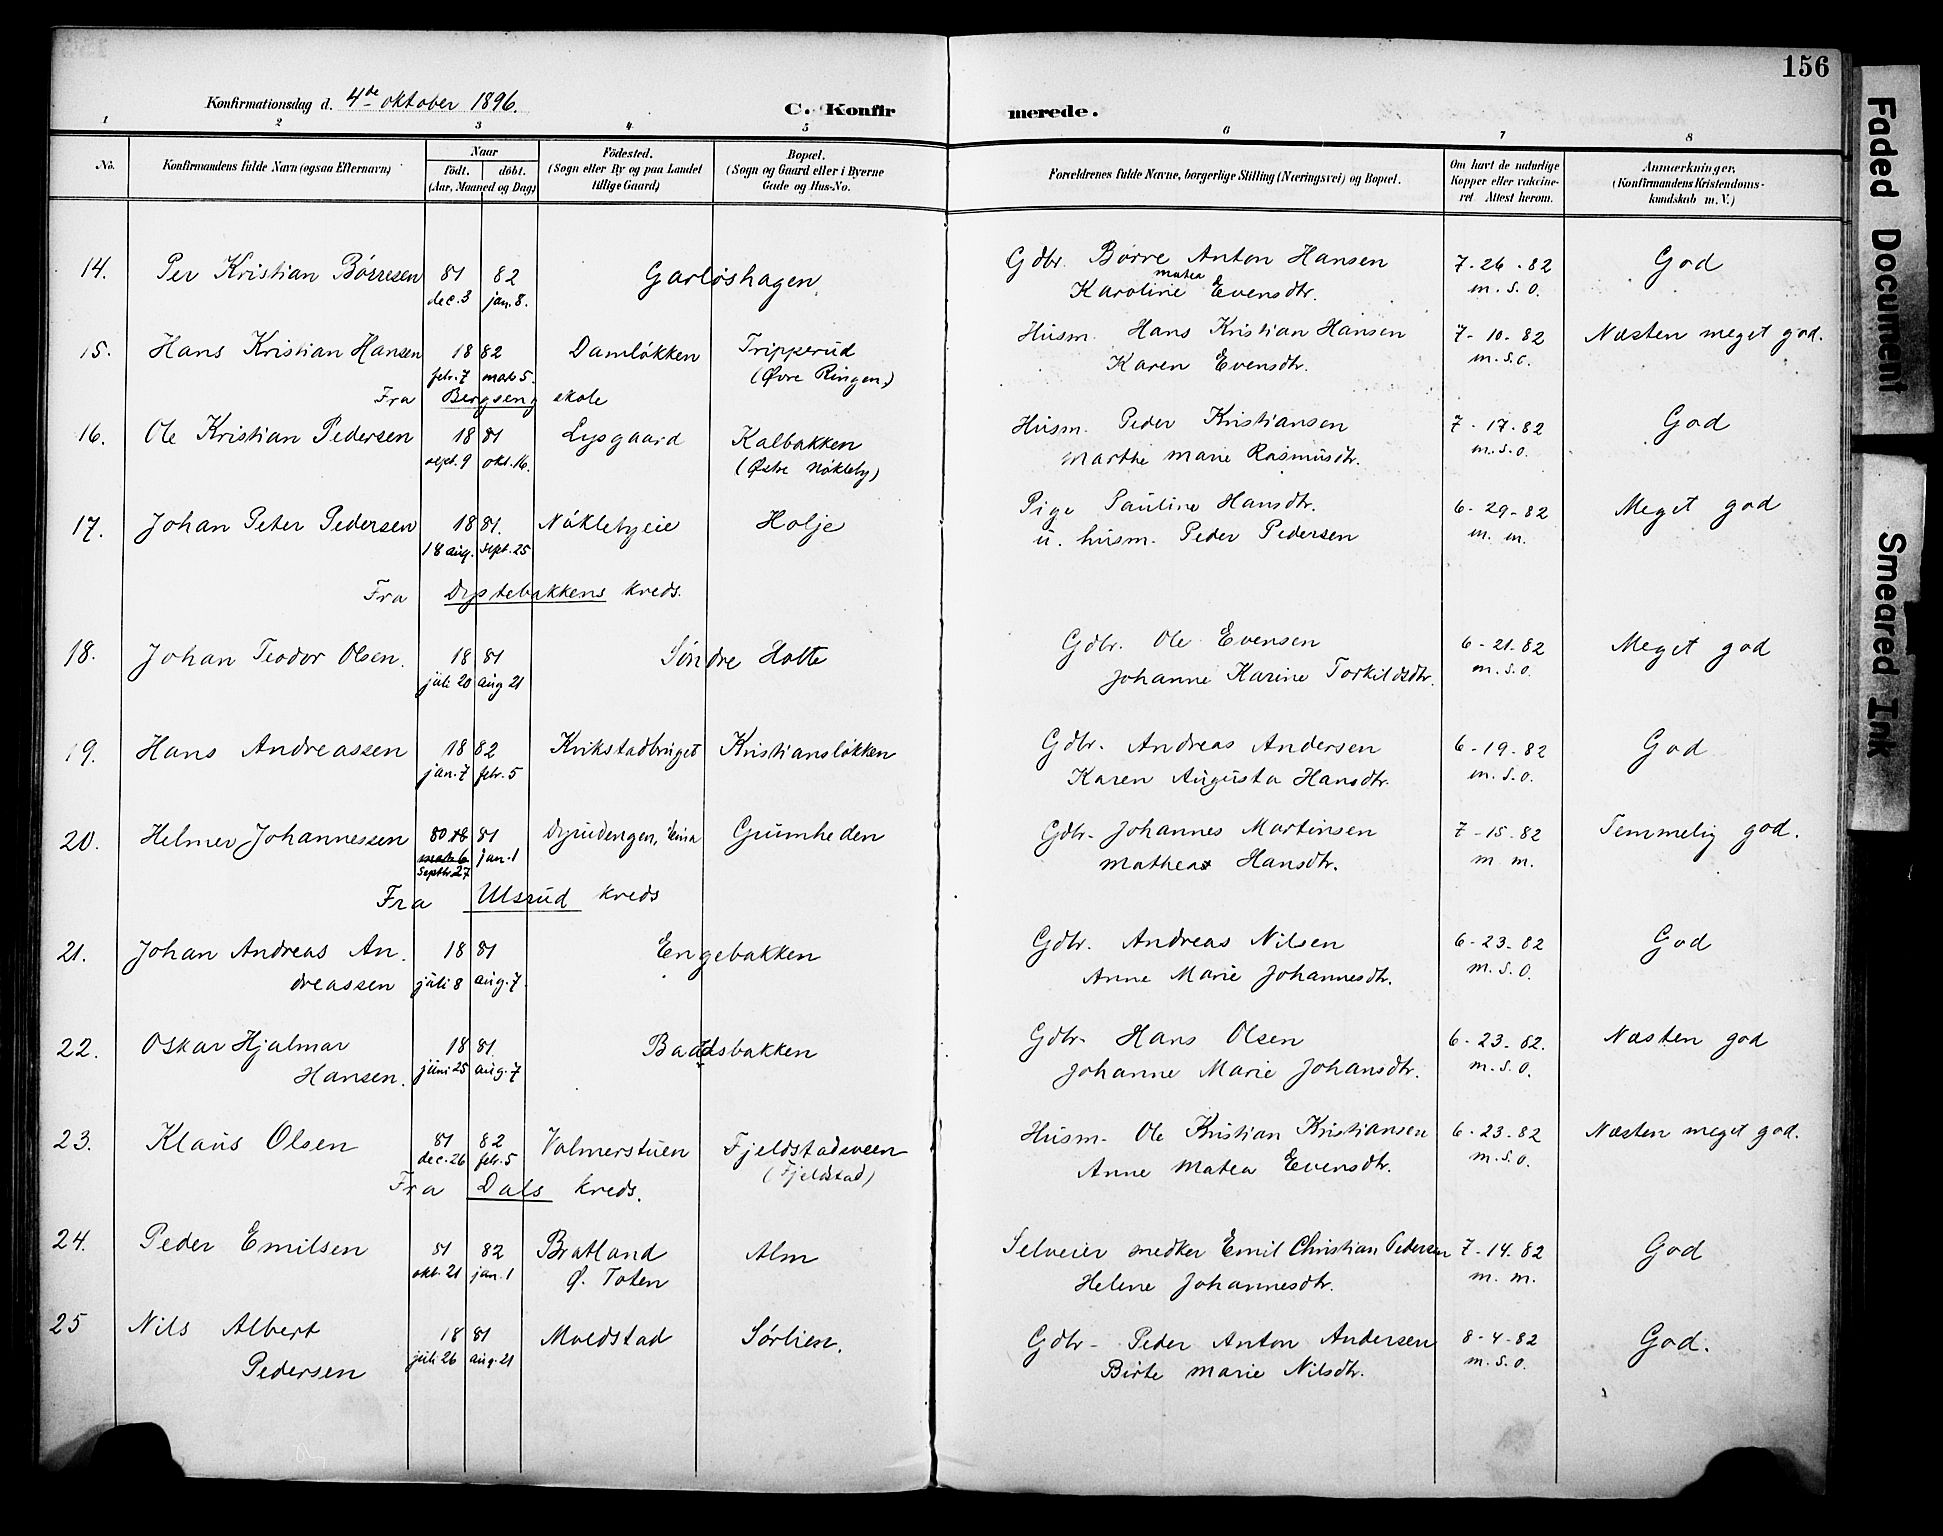 156
Konfirmationsdag d. 4de oktober 1896.
C. Konfirmerede.
1 2 3 4 5 6 7 8
No.
Konfirmandens fulde Navn (ogsaa Efternavn)
Naar
födt. döbt.
(Aar, Maaned og Dag)
Födested.
(Sogn eller By og paa Landet
tillige Gaard)
Bopæl.
(Sogn og Gaard eller i Byerne
Gade og Hus-No.
Forældrenes fulde Navne, borgerlige Stilling (Næringsvei) og Bopæl.
Om havt de naturlige
Kopper eller vakcine-
ret Attest herom.
Anmærkninger,
(Konfirmandens Kristendoms-
kundskab m. V.)
14. Per Kristian Börresen 81 82 Garløshagen Gdbr. Börre Anton Hansen 7-26-82 God
dec. 3 jan. 8. Karoline matea Evensdtr. m. s. o.
15. Hans Kristian Hansen 18 82 Damløkken Tripperud Husm. Hans Kristian Hansen 7-10-82 Næsten meget god.
febr. 7 mars 5. (Øvre Ringen) Karen Evensdtr. m. s. o.
Fra Bergseng skole
16. Ole Kristian Pedersen 18 81 Lysgaard Kalbakken Husm. Peder Kristiansen 7-17-82 God
sept. 9 okt. 16. (Østre Nökleby) Marthe Marie Rasmusdtr. m. s. o.
17. Johan Peter Pedersen 18 81. Nöklebyeie Holje Pige Pauline Hansdtr. 6-29-82 Meget god
18 aug. sept. 25 u. husm. Peder Pedersen m. m.
Fra Dystebakkens kreds.
18. Johan Teodor Olsen. 18 81 Söndre Holte Gdbr. Ole Evensen 6-21-82 Meget god
juli 20 aug 21 Johanne Karine Torkildsdtr. m. s. o.
19. Hans Andreassen 18 82 Krikstadbruget Kristiansløkken Gdbr. Andreas Andersen 6-19-82 God
jan. 7 febr. 5 Karen Augusta Hansdtr. m. s. o.
20. Helmer Johannessen 80 81 Eina Grumheden Gdbr. Johannes Martinsen 7-15-82 Temmelig god.
septbr. 27 jan. 1 Mathea Hansdtr. m. m.
Fra Ulsrud kreds
21. Johan Andreas An- 18 81 Engebakken Gdbr. Andreas Nilsen 6-23-82 God
dreassen juli 8 aug. 7. Anne Marie Johannesdtr. m. s. o.
22. Oskar Hjalmar 18 81 Baadsbakken Gdbr. Hans Olsen 6-23-82. Næsten god
Hansen. juni 25 aug. 7 Johanne Marie Johansdtr. m. s. o.
23. Klaus Olsen 81 82 Valmerstuen Fjeldstadsveen Husm. Ole Kristian Kristiansen 6-23-82 Næsten meget god.
dec. 26 febr. 5 (Fjeldstad) Anne Matea Evensdtr. m. s. o.
Fra Dals kreds.
24. Peder Emilsen 81 82 Bratland Alm Selveier snedker Emil Christian Pedersen 7-14-82 God
okt. 21 jan. 1 Ø. Toten Helene Johannesdtr. m. m.
25 Nils Albert 18 81 Moldstad Sørlien. Gdbr. Peder Anton Andersen 8-4-82 God.
Pedersen juli 26 aug. 21 Birte Marie Nilsdtr. m. s. o.
Faded Document
Smeared Ink